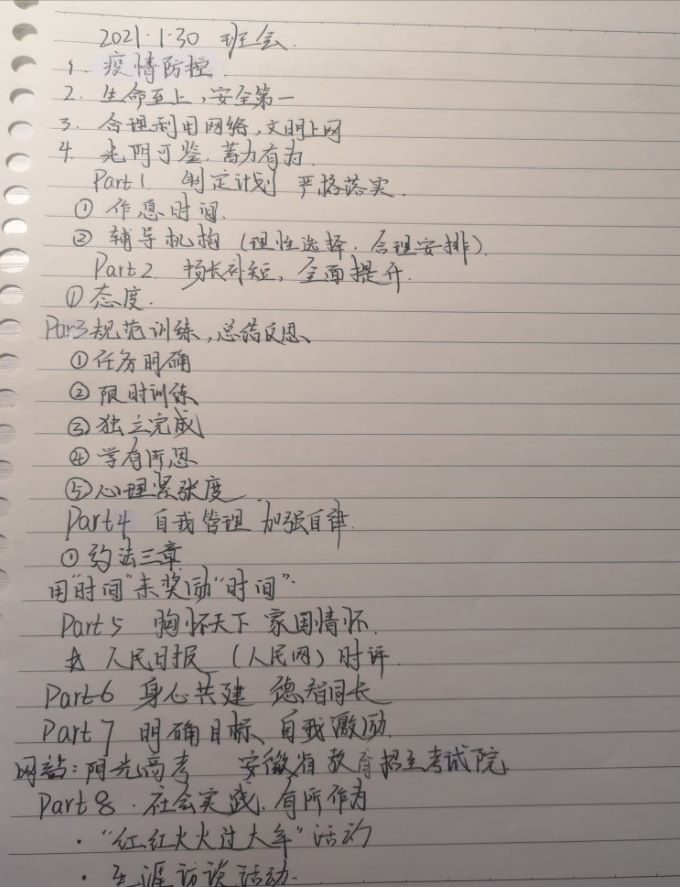 2021.1.30 班会.
1. 疫情防控.
2. 生命至上,安全第一
3. 合理利用网络,文明上网
4. 光阴可鉴.蓄力有为.
Part1. 制定计划 严格落实.
① 作息时间.
② 辅导机构(理性选择.合理安排).
Part2. 扬长补短,全面提升.
①态度.
Par3规范训练,总结反思、
①任务明确
②限时训练
③独立完成
④学有所思
⑤心理紧张度
Part4 自我管理 加强自律.
①约法三章.
用"时间"来奖励"时间".
Part5 胸怀天下 家国情怀.
人民日报 (人民网)时评.
Part6 身心共建 德智同长
Part7 明确目标、自我激励.
网站:阳光高考 安徽省教育招生考试院.
Part8.社会实践.有所作为
·"红红火火过大年"活动
·生涯访谈活动.